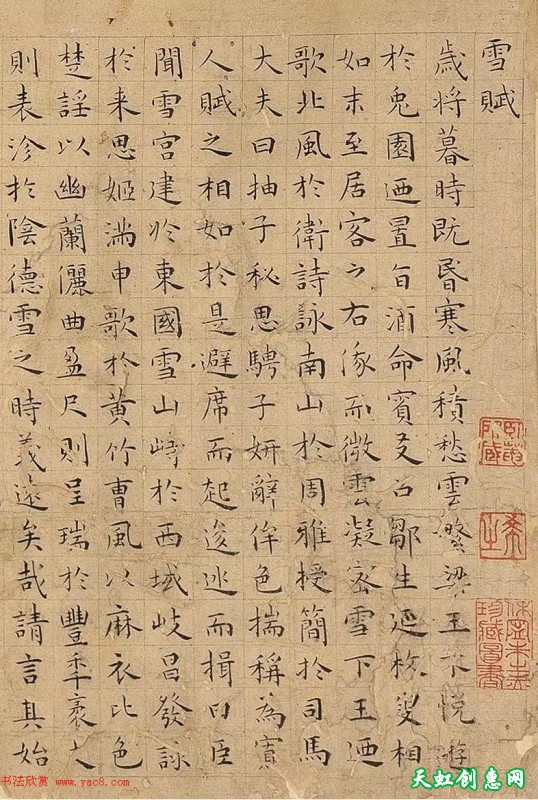 雪賦
歲將暮時既昬寒風積愁雲繁梁王不悅遊
於兔園迺置旨酒命賓友召鄒生延枚叟相
如末至居客之右俄而微雲凝密雪下王迺
歌北風於衛詩詠南山於周雅授簡於司馬
大夫曰抽子秘思騁子妍辭侔色揣稱為賓
人賦之相如於是避席而起逡巡而揖曰臣
聞雪宮建於東國雪山峙於西域岐昌發詠
於来思姬滿申歌於黃竹曹風以麻衣比色
楚謡以幽蘭儷曲盈尺則呈瑞於豐年袤丈
則表沴於陰德雪之時義遠矣哉請言其始
书法欣赏 www.yac8.com
天虹创惠网